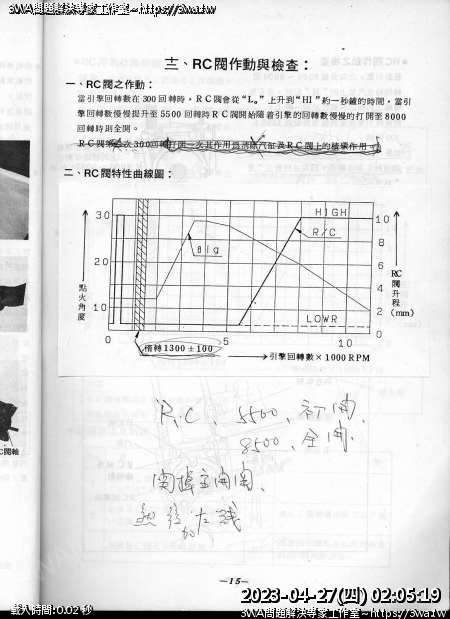 3WA問題解決專家工作室~https://3wa.tw
三、RC閥作動與檢查：
一、RC閥之作動：
當引擎回轉數在300回轉時，RC閥會從“L。”上升到“HI”約一秒鐘的時間，當引
擎回轉數慢慢提升至5500回轉時RC閥開始隨着引擎的回轉數慢慢的打開至8000
回轉時則全開。
二、RC閥特性曲線圖：
30
20
10
點火角度
HIGH
R/C
Big
LOWR
10
8
6
4
2
0
RC閥升程(mm)
0
5
10
惰轉1300±100
→引擎回轉數×1000RPM
R.C、5500、初開、
8500、全開、
C閥軸
—15—
2023-04-27(四) 02:05:19
載入時間:0.02 秒
3WA問題解決專家工作室~https://3wa.tw